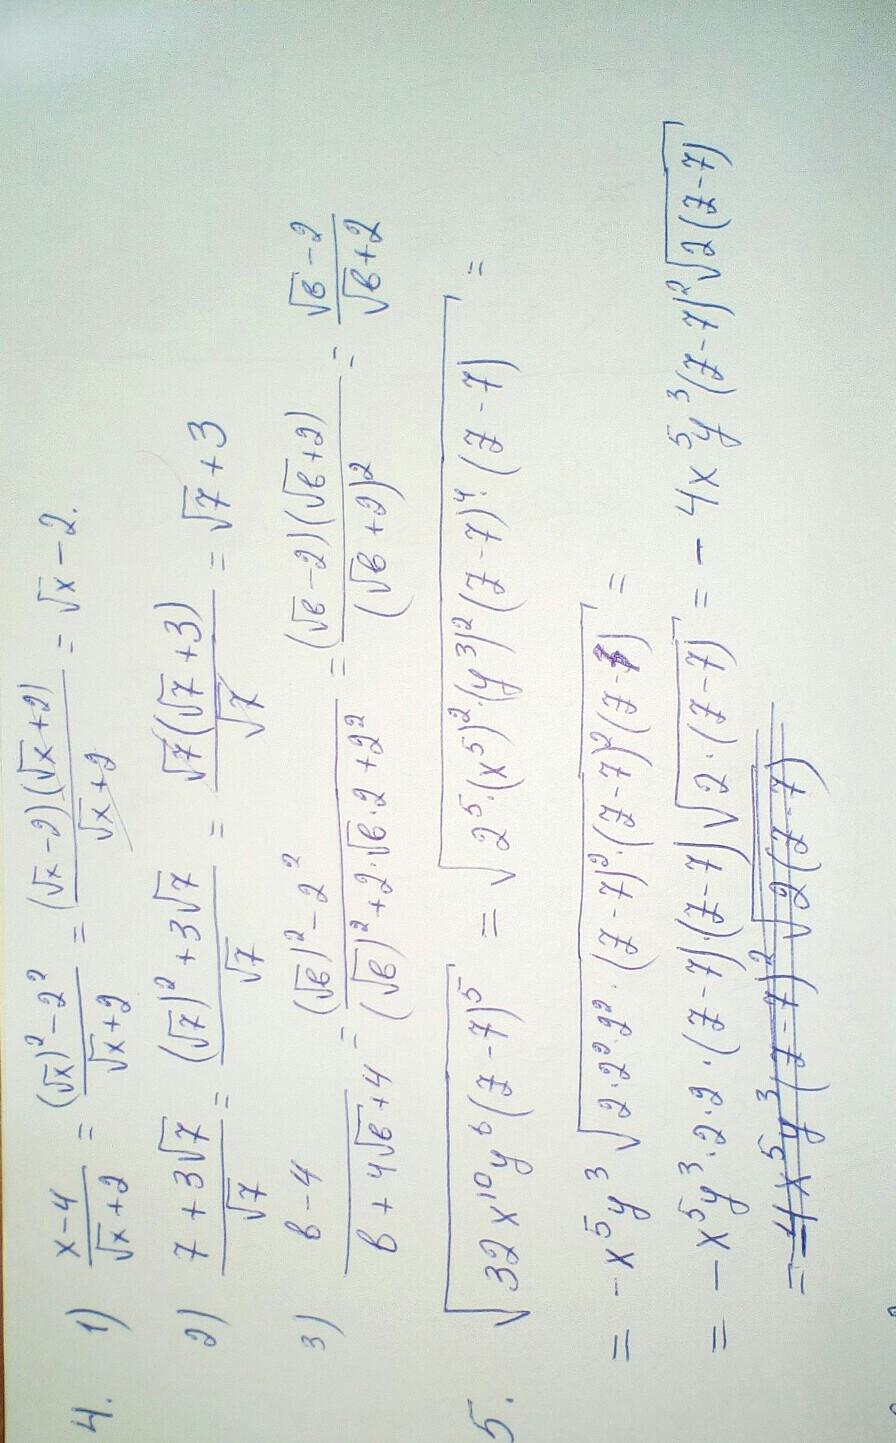 4. 1) (x-4)/(√x+2) = ((√x)²-2²)/(√x+2) = ((√x-2)(√x+2))/(√x+2) = √x-2.
2) (7+3√7)/√7 = ((√7)²+3√7)/√7 = (√7(√7+3))/√7 = √7+3
3) (в-4)/(в+4√в+4) = ((√в)²-2²)/((√в)²+2·√в·2+2²) = ((√в-2)(√в+2))/(√в+2)² = (√в-2)/(√в+2)
5. √(32x¹⁰y⁶(z-7)⁵) = √(2⁵·(x⁵)²·(y³)²(z-7)⁴·(z-7)) =
= -x⁵y³√(2·2²·2²·(z-7)²·(z-7)²(z-7)) =
= -x⁵y³·2·2·(z-7)·(z-7)√(2·(z-7)) = -4x⁵y³(z-7)²√(2(z-7))
= -4x⁵y³(z-7)²√(2(z-7))